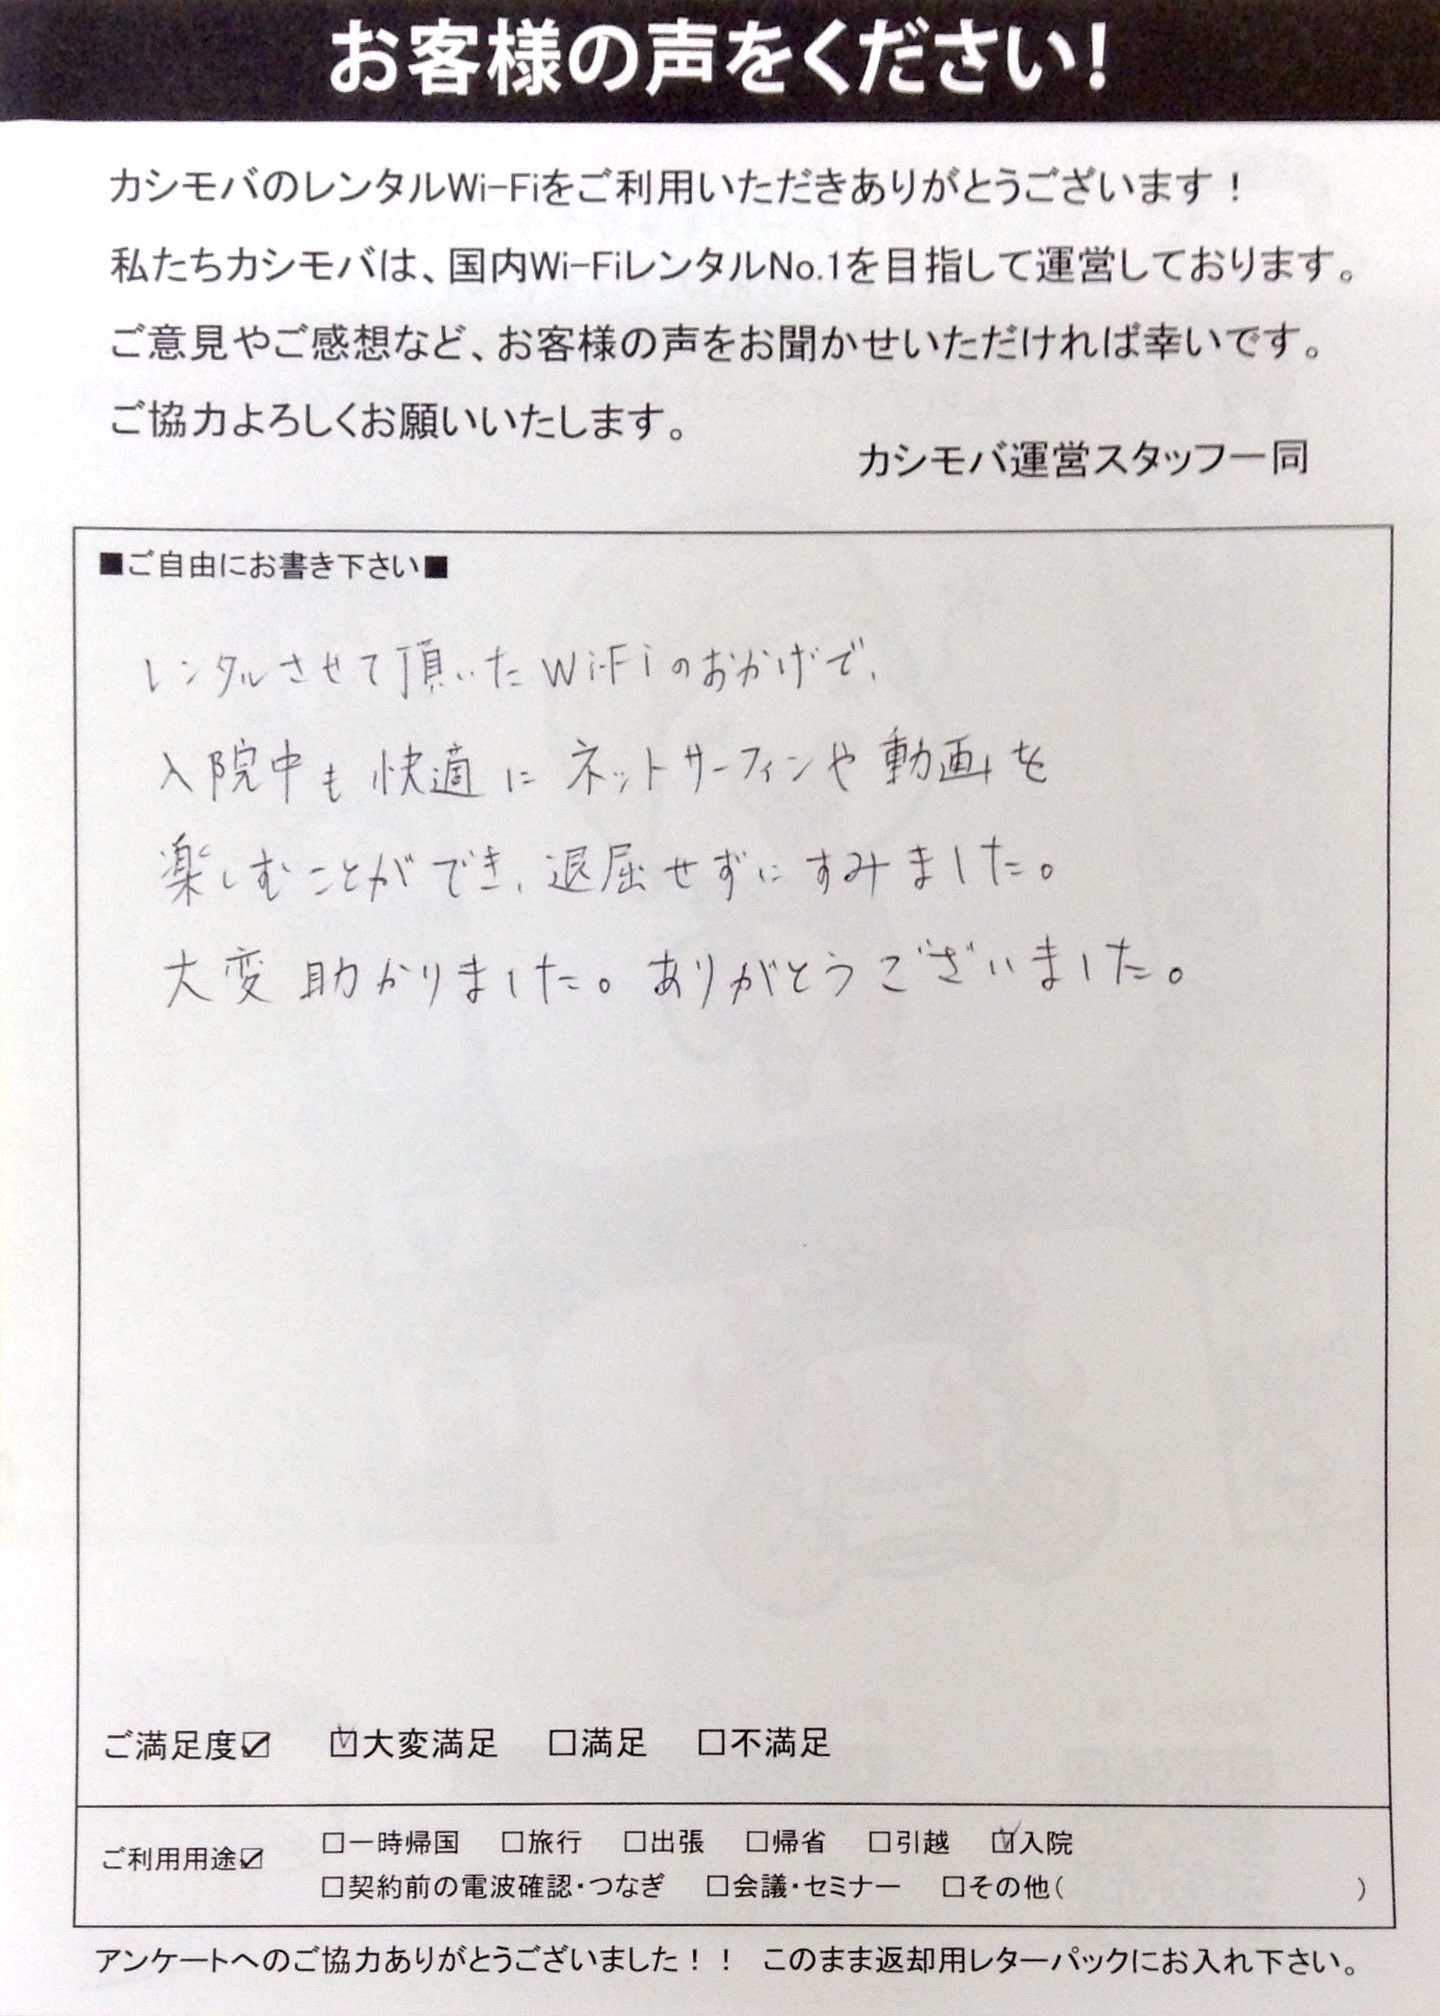 お客様の声をください!
カシモバのレンタルWi-Fiをご利用いただきありがとうございます！
私たちカシモバは、国内Wi-FiレンタルNo.1を目指して運営しております。
ご意見やご感想など、お客様の声をお聞かせいただければ幸いです。
ご協力よろしくお願いいたします。
カシモバ運営スタッフ一同
■ご自由にお書き下さい■
レンタルさせて頂いたWi-Fiのおかげで、
入院中も快適にネットサーフィンや動画を
楽しむことができ、退屈せずにすみました。
大変助かりました。ありがとうございました。
ご満足度☑ ☑大変満足 □満足 □不満足
ご利用用途☑ □一時帰国 □旅行 □出張 □帰省 □引越 ☑入院
□契約前の電波確認・つなぎ □会議・セミナー □その他( )
アンケートへのご協力ありがとうございました！！ このまま返却用レターパックにお入れ下さい。